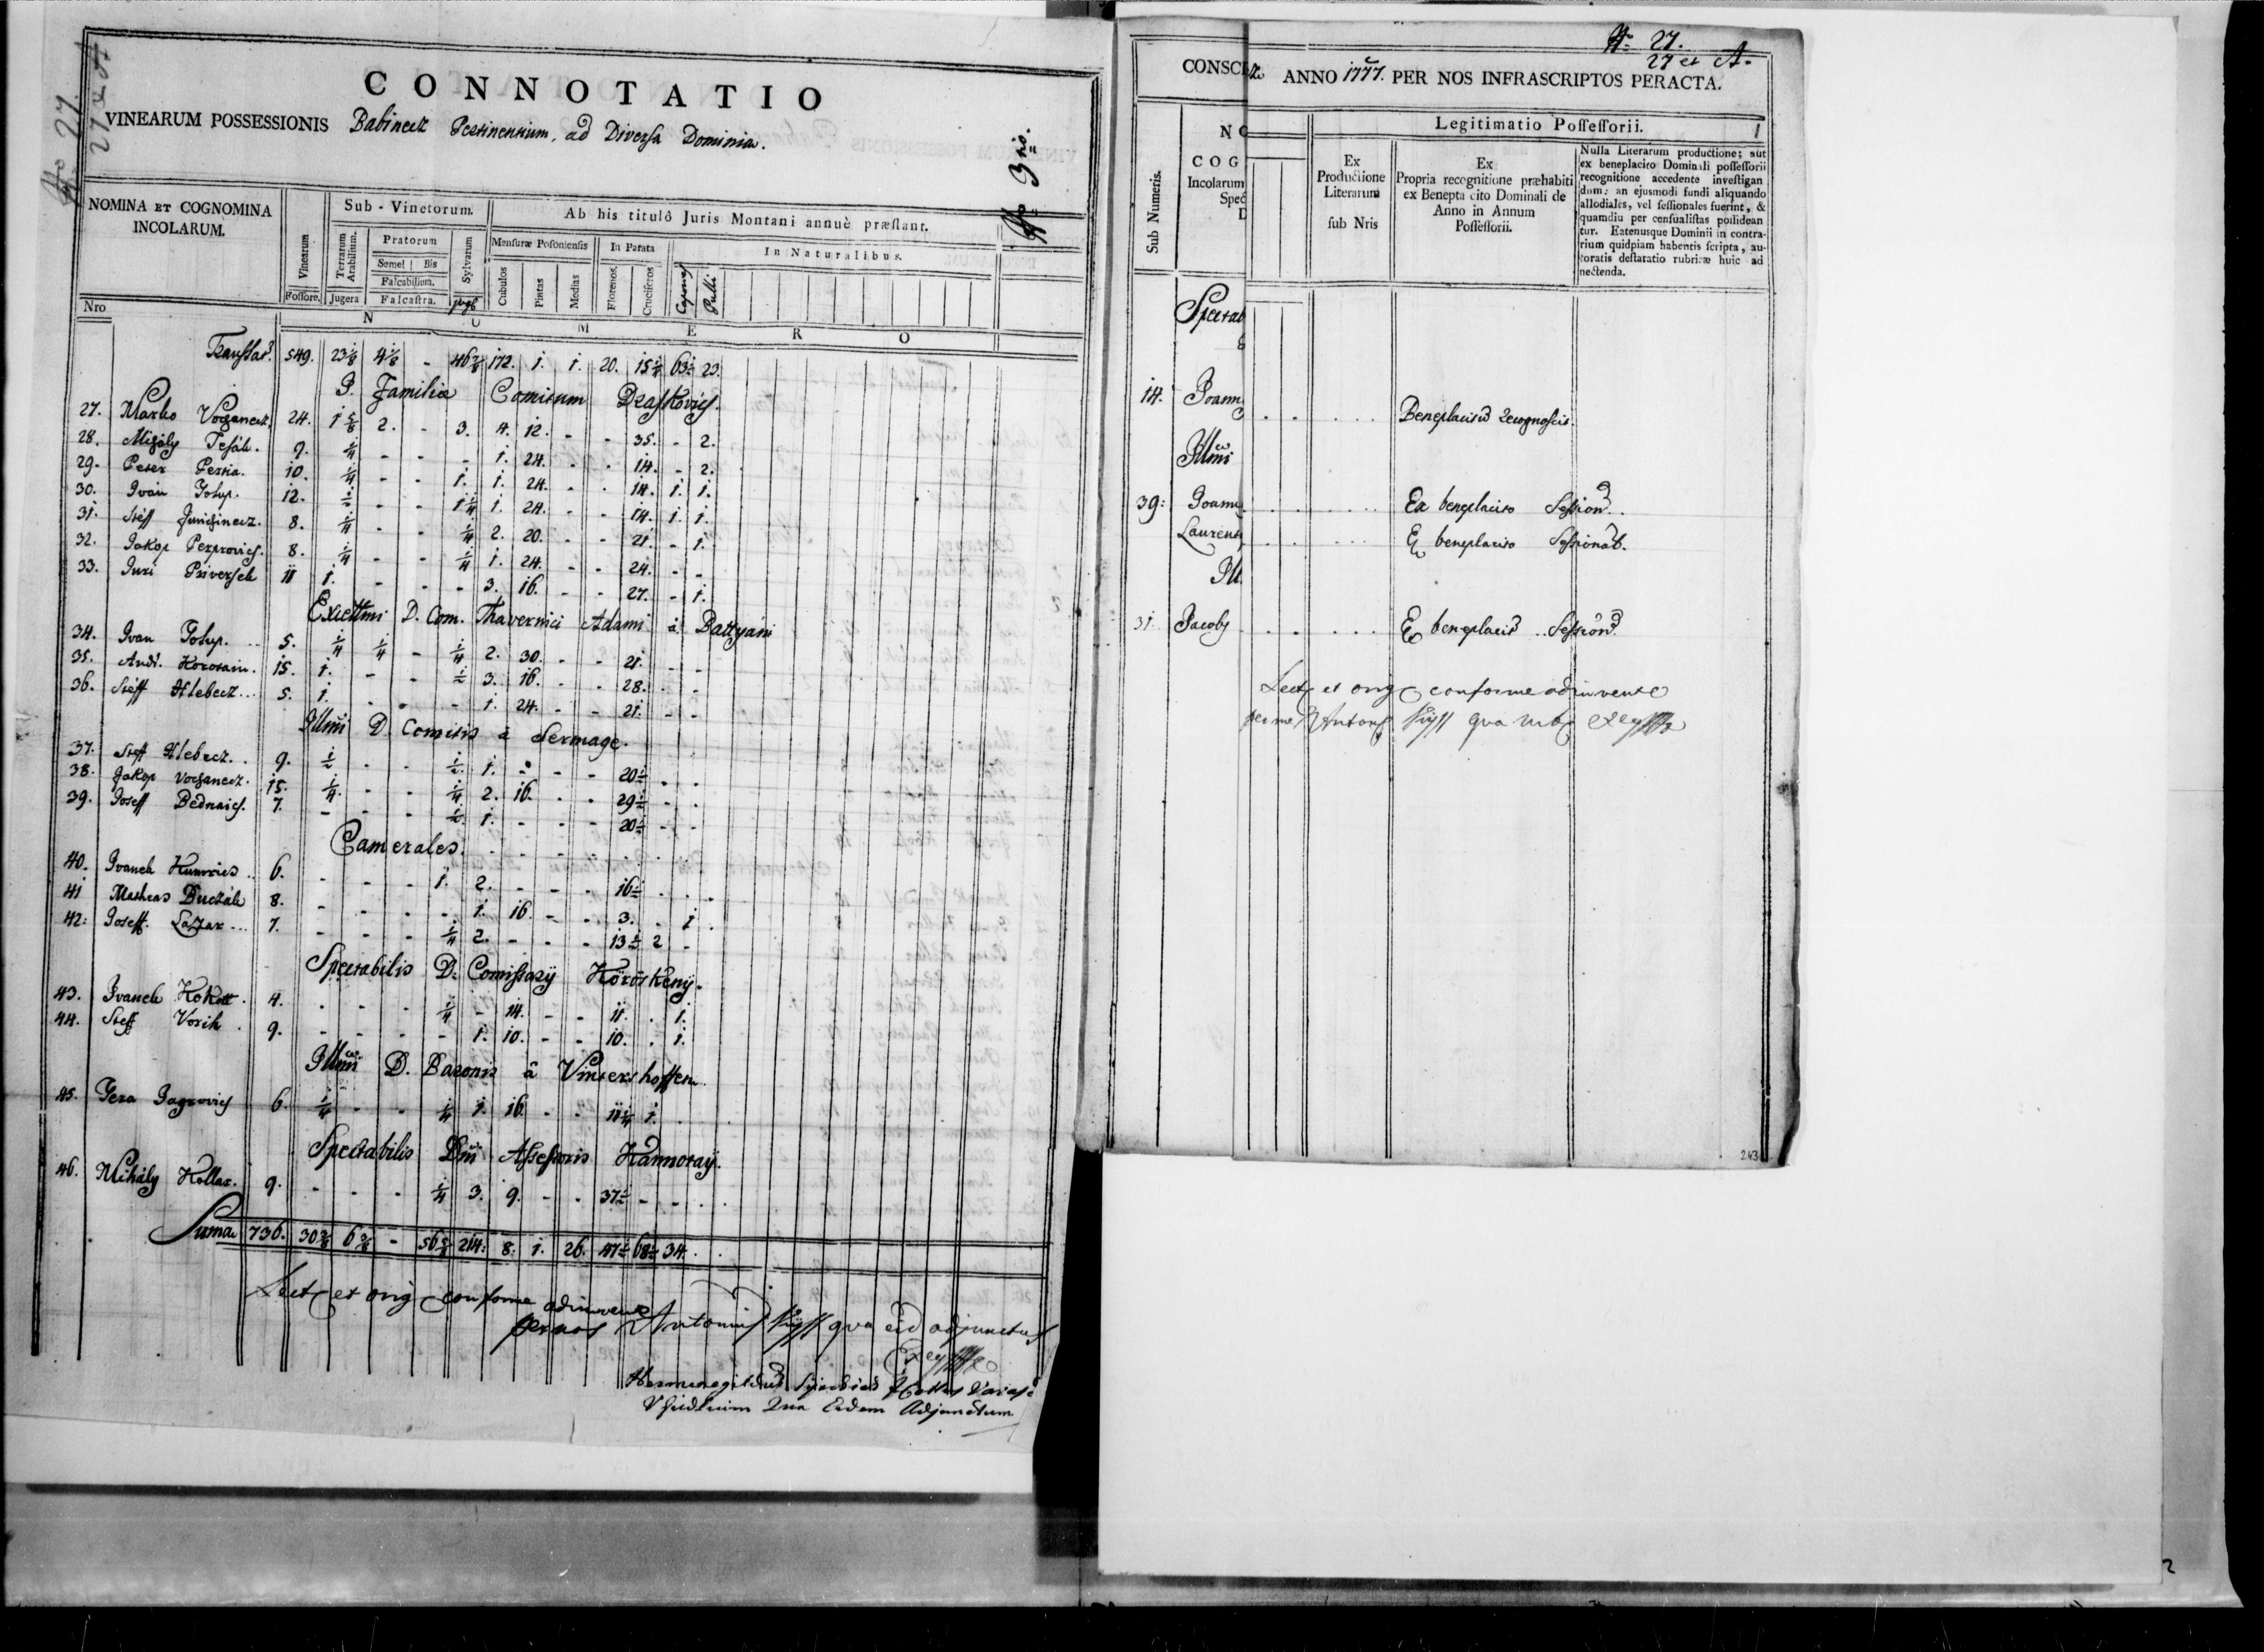 Nro 27
27 et A
CONNOTATIO
VINEARUM POSSESSIONIS Babinecz Pertinentium, ad Diversa Dominia.
Nro 3tio.
NOMINA ET COGNOMINA INCOLARUM.
Vinearum
Fossore.
Sub - Vinetorum.
Terrarum Arabilium.
Jugera
Pratorum
Semel | Bis
Falcabilium.
Falcastra.
Sylvarum
jug
Ab his titulô Juris Montani annuè præstant.
Mensuræ Posoniensis
Cubulos
Pintas
Medias
In Parata
Florenos.
Cruciferos
In Naturalibus.
Capones
Pulli
Nro
N U M E R O
Translat. 549. 23 1/8 4 1/8 - 46 7/8 172. 1. 1. 20. 15 1/4 63 1/2 23.
I. Familiæ Comitum Draskovics.
27. Marko Vocsanecz. 24. 1 5/8 2. - 3. 4. 12. - - 35. - 2.
28. Mihaly Tesák. 9. 1/4 - - - 1. 24. - - 14. - 2.
29. Peter Pertia. 10. 1/4 - - 1. 1. 24. - - 14. 1. 1.
30. Iván Josup. 12. 1/2 - - 1 1/4 1. 24. - - 14. 1. 1.
31. Steff Junichinecz. 8. 1/4 - - 1/4 2. 20. - - 21. - 1.
32. Jakop Petrovics. 8. 1/4 - - 1/4 1. 24. - - 24. - -
33. Juri Priversek 11 1. - - - 3. 16. - - 27. - 1.
Excellmi D. Com. Thavernici Adami à Battyáni
34. Ivan Josup. 5. 1/4 1/4 - 1/4 2. 30. - - 21. - -
35. And. Horosain. 15. 1. - - 1/2 3. 16. - - 28. - -
36. Steff Hlebecz. 5. 1. - - - 1. 24. - - 21. - -
Illmi D. Comitis à Sermage.
37. Steff Hlebecz. 9. 1/2 - - 1/2 1. - - - 20 1/2 - -
38. Jakop Vocsanecz. 15. 1/4 - - 1/4 2. 16. - - 29 1/2 - -
39. Joseff Bednaics. 7. - - - 1/2 1. - - - 20 1/2 - -
Camerales.
40. Ivanek Humrics 6. - - - 1. 2. - - - 16 1/2 - -
41 Mathias Duczák 8. - - - - 1. 16. - - 3. - 1.
42: Joseff. Lazar 7. - - - 1/4 2. - - - 13 1/2 2 -
Spectabilis D. Comissarÿ Köröskenÿ.
43. Ivanek Kokott. 4. - - - 1/4 - 14. - - 11. - 1.
44. Steff Vorih. 9. - - - - 1. 10. - - 10. - 1.
Illmi D. Baronis à Vintershoffen.
45. Jera Jagrovics 6. 1/4 - - 1/4 1. 16. - - 11 1/4 1.
Spectabilis Dni Assessoris Hannoraÿ.
46. Mihály Kollar. 9. - - - 1/4 3. 9. - - 37 1/2 - -
Suma 736. 30 3/8 6 3/8 - 56 5/8 214. 8. 1. 26. 47 1/2 68 1/2 34.
Lect et orig conforme adinvent
per nos Antonius Kiss qua eid adjunctus
qua Eadem Adjunctum
Nro 27.
27 et A.
CONSC ANNO 1777. PER NOS INFRASCRIPTOS PERACTA.
Sub Numeris.
N
COG
Incolarum
Spec
D
Legitimatio Possessorii. 1
Ex Productione Literarum sub Nris
Ex Propria recognitione præhabiti ex Benepta cito Dominali de Anno in Annum Possessorii.
Nulla Literarum productione; aut ex beneplacito Dominali possessorii recognitione accedente investigan dum: an ejusmodi fundi aliquando allodiales, vel sessionales fuerint, & quamdiu per censualistas possidean tur. Eatenusque Dominii in contra- rium quidpiam habentis scripta, au- toratis destaratio rubricæ huic ad nectenda.
Spectab
14. Joann Beneplacitu recognoscit.
Illmi
39: Joann Ex beneplacito Session
Laurent Ex beneplacito Sessionat.
Ill
31. Jacob Ex beneplacit Session
Lect et orig conforme adinvent
per me Anton Kiss qua
243
2